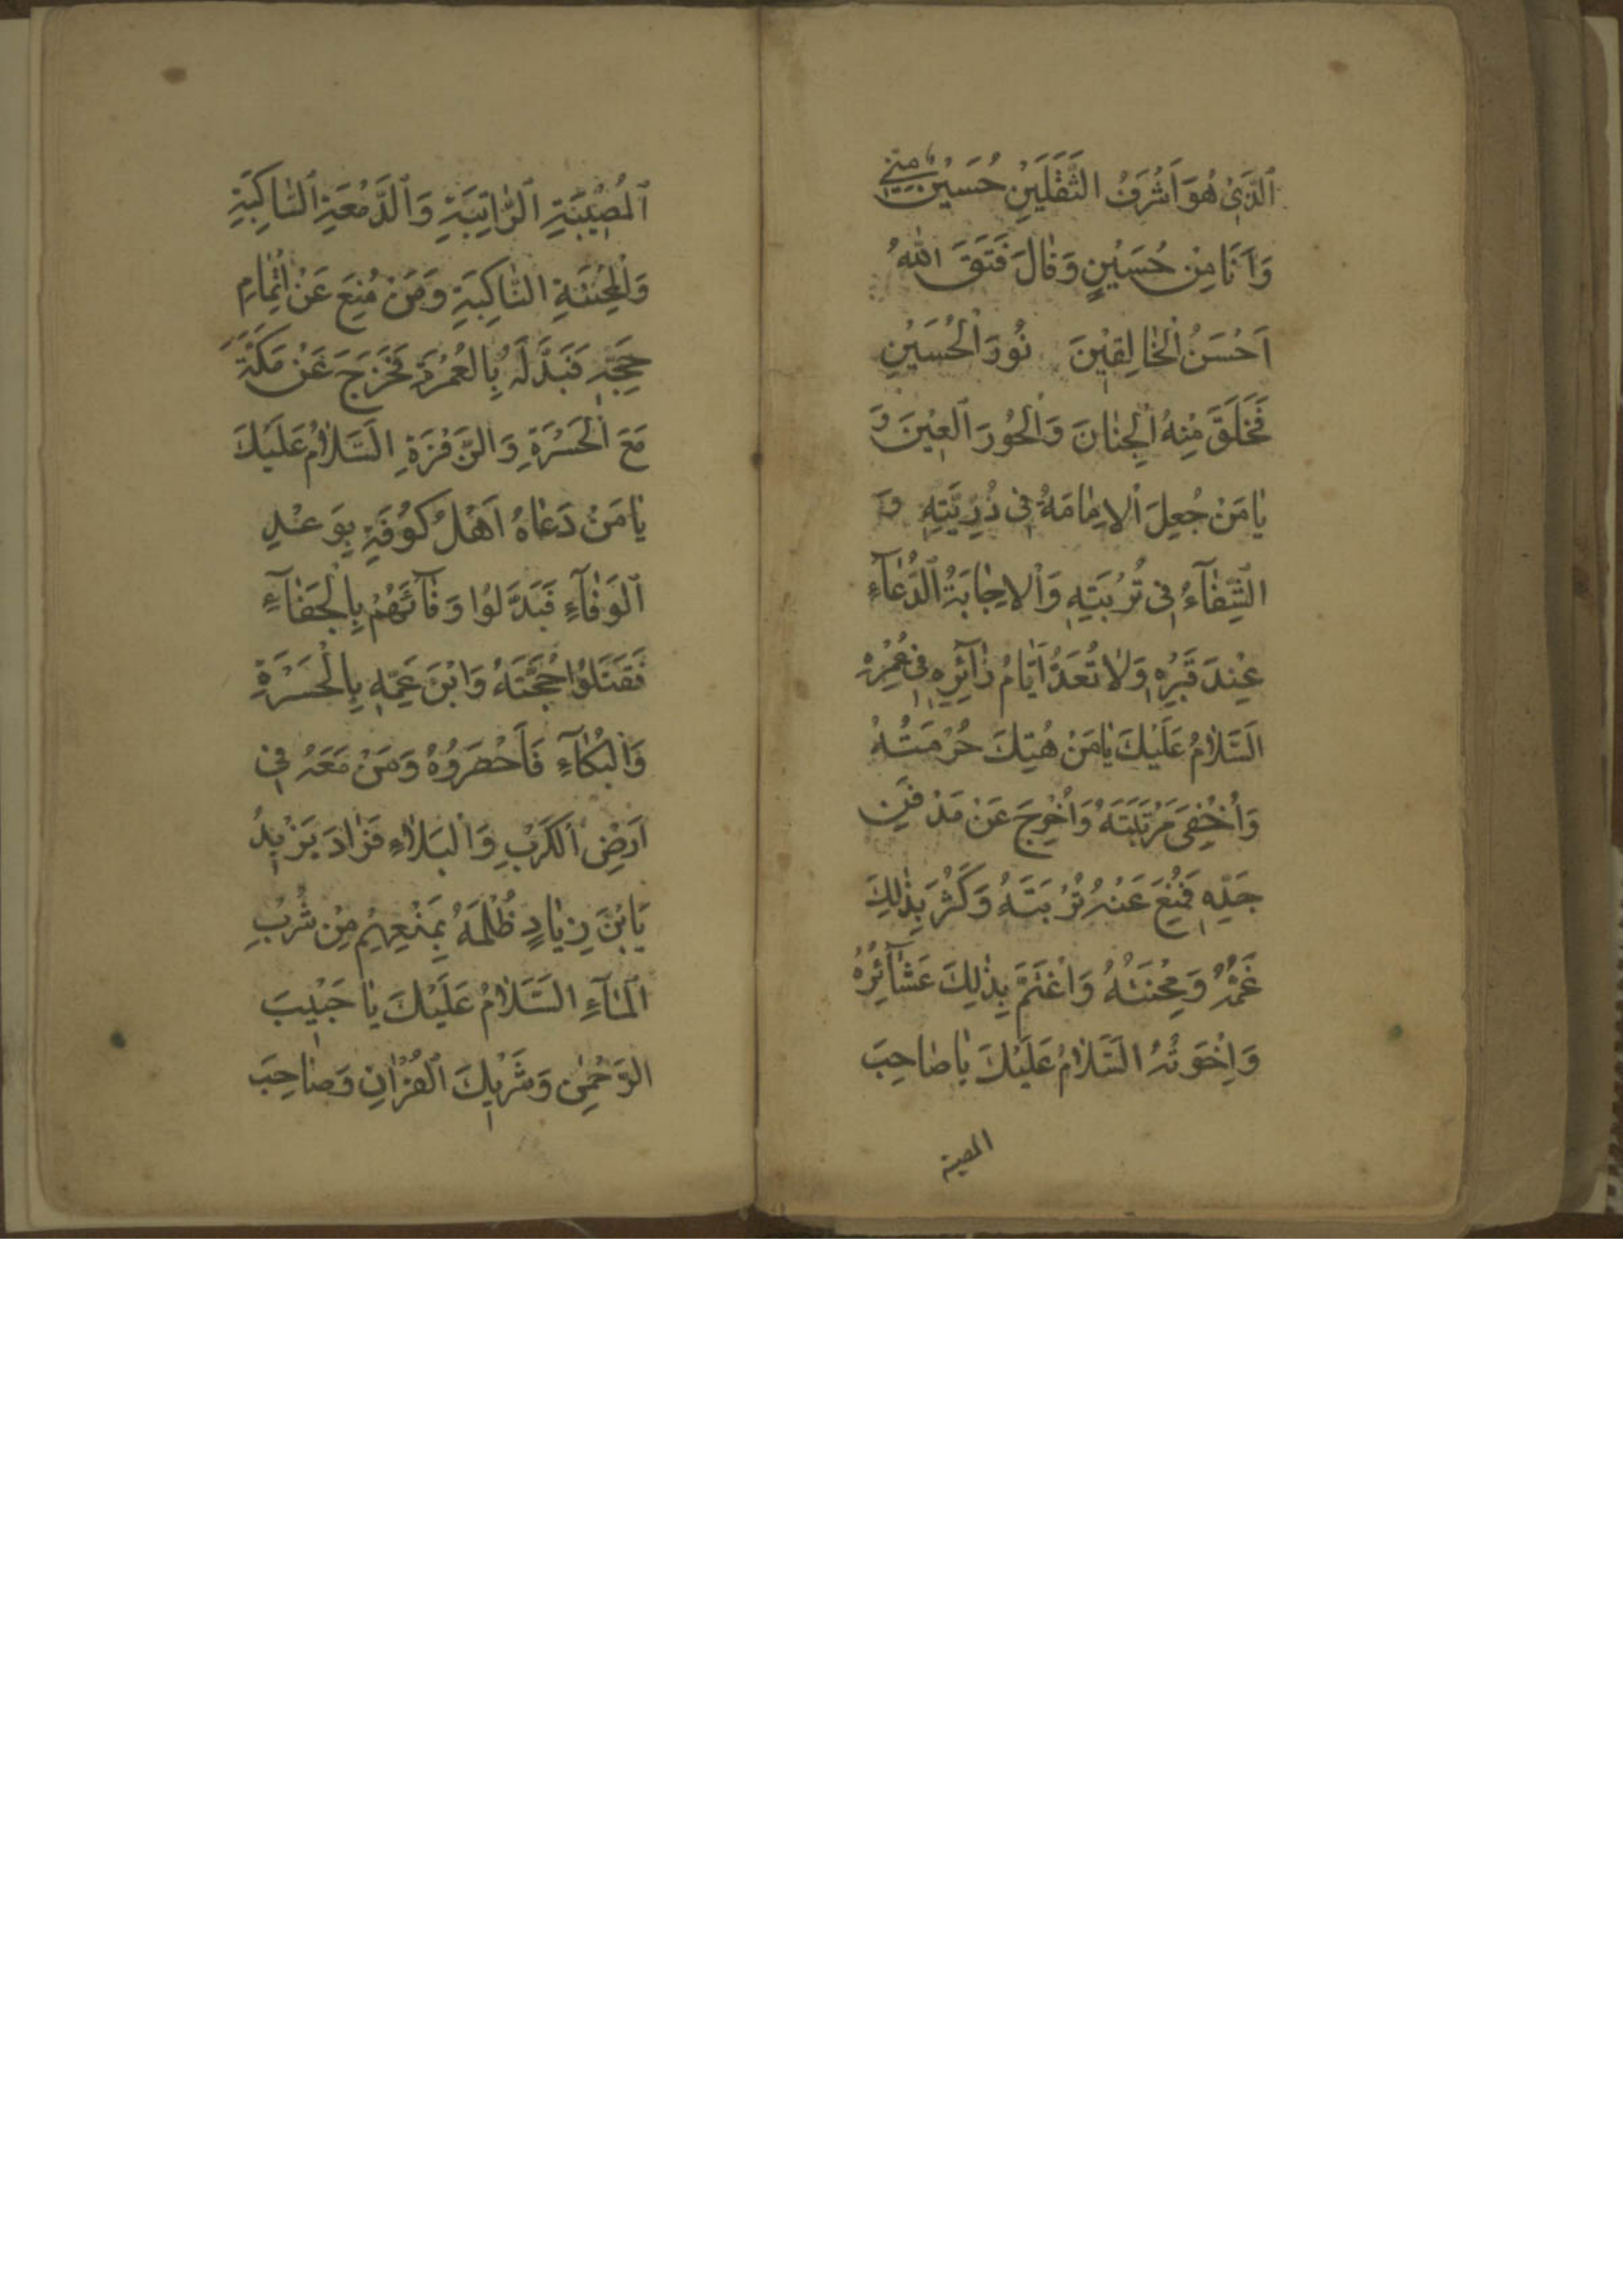 اَلَّذِی هُوَ اَشْرَفُ الثَّقَلَیْنِ حُسَیْنٌ مِنّی
وَاَنَا مِنْ حُسَیْنٍ وَقَالَ فَتَقَ اللّٰهُ
اَحْسَنُ الْخَالِقِیْنَ نُورَ الْحُسَیْنِ
فَخَلَقَ مِنْهُ الْجِنَانَ وَالْحُورَ الْعِیْنَ وَ
یَا مَنْ جُعِلَ الْاِمَامَةُ فِی ذُرِّیَّتِهِ وَ
الشِّفَآءُ فِی تُرْبَتِهِ وَالْاِجَابَةُ الدُّعَآءِ
عِنْدَ قَبْرِهِ وَلَا تُعَدُّ اَیَّامُ زَآئِرِهِ فِی عُمْرِهِ
اَلسَّلَامُ عَلَیْكَ یَا مَنْ هُتِكَ حُرْمَتُهُ
وَاُخْفِیَ مَرْتَبَتَهُ وَاُخْرِجَ عَنْ مَدْفَنِ
جَدِّهِ فَمُنِعَ عَنْهُ تُرْبَتَهُ وَكَثُرَ بِذٰلِكَ
غَمُّهُ وَمِحْنَتُهُ وَاغْتَمَّ بِذٰلِكَ عَشَآئِرُهُ
وَاِخْوَتُهُ اَلسَّلَامُ عَلَیْكَ یَا صَاحِبَ
المصیبة
اَلْمُصِیْبَةِ الرَّاتِبَةِ وَالدَّمْعَةِ السَّاكِبَةِ
وَالْمِحْنَةِ النَّاكِبَةِ وَمَنْ مُنِعَ عَنْ اِتْمَامِ
حَجَّتِهِ فَبَدَّلَهُ بِالْعُمْرَةِ فَخَرَجَ عَنْ مَكَّةَ
مَعَ الْحَسْرَةِ وَالزَّفْرَةِ اَلسَّلَامُ عَلَیْكَ
یَا مَنْ دَعَاهُ اَهْلُ كُوْفَةِ بِوَعْدِ
الْوَفَآءِ فَبَدَّلُوا وَفَآئَهُمْ بِالْجَفَآءِ
فَقَتَلُوا حُجَّتَهُ وَابْنَ عَمِّهِ بِالْحَسْرَةِ
وَالْبُكَآءِ فَاَحْصَرُوهُ وَمَنْ مَعَهُ فِی
اَرْضِ الْكَرْبِ وَالْبَلَاءِ فَزَادَ یَزِیدُ
یَابْنَ زِیَادٍ ظُلْمَهُ بِمَنْعِهِمْ مِنْ شُرْبِ
الْمَآءِ اَلسَّلَامُ عَلَیْكَ یَا حَبِیْبَ
الرَّحْمٰنِ وَشَرِیكَ الْقُرْاٰنِ وَصَاحِبَ